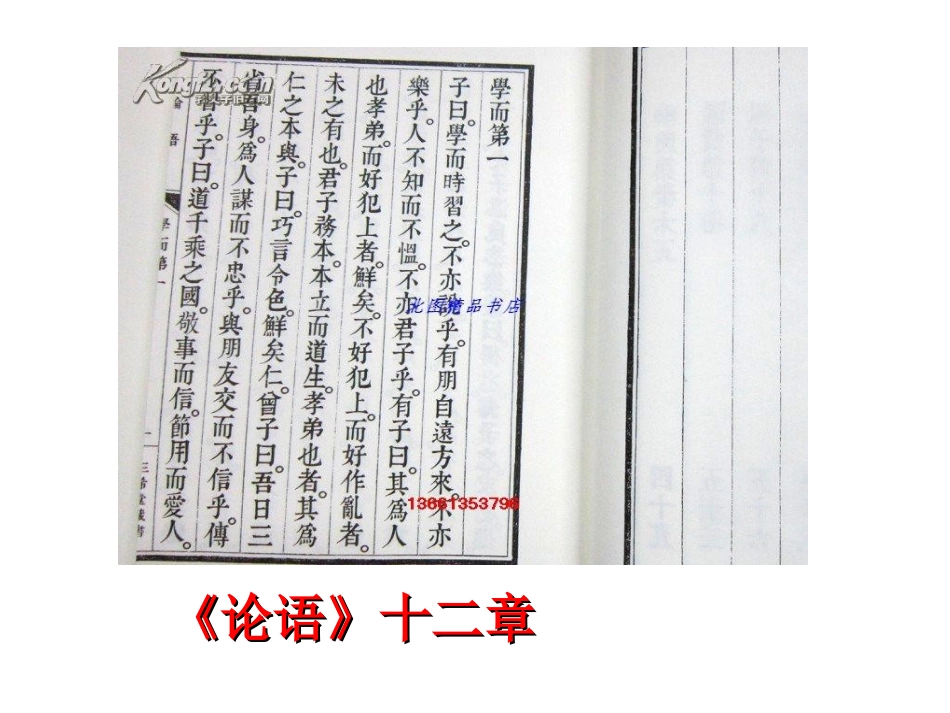 學而第一
子曰。學而時習之。不亦說乎。有朋自遠方來。不亦
樂乎。人不知而不慍。不亦君子乎。有子曰。其爲人
也孝弟。而好犯上者。鮮矣。不好犯上。而好作亂者。
未之有也。君子務本。本立而道生。孝弟也者。其爲
仁之本與。子曰。巧言令色。鮮矣仁。曾子曰。吾日三
省吾身。爲人謀而不忠乎。與朋友交而不信乎。傳
不習乎。子曰。道千乘之國。敬事而信。節用而愛人。
論語
學而第一
一
三希堂藏書
北图精品书店
13661353796
《论语》十二章